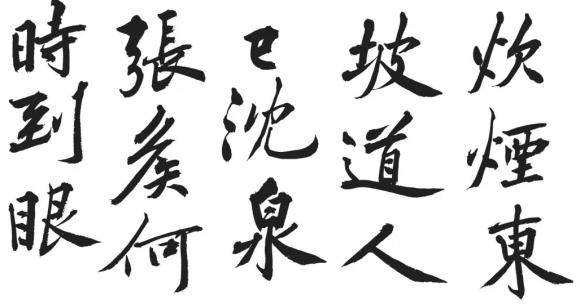 炊煙東
坡道人
已沈泉
張矦何
時到眼